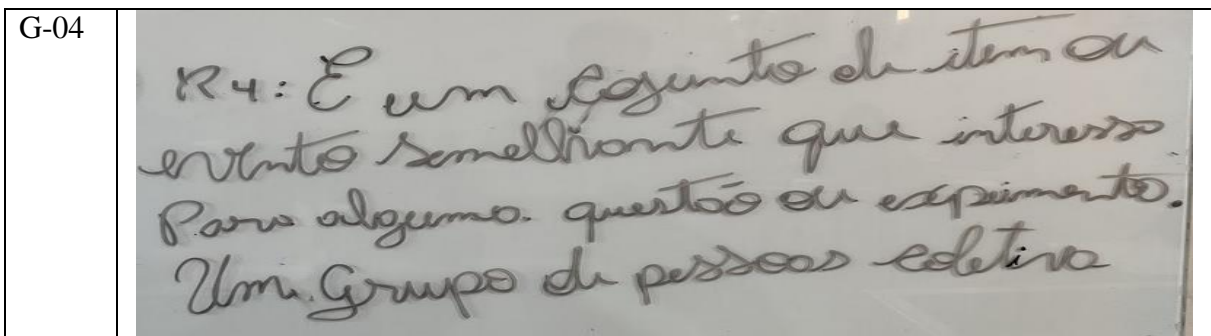 G-04
R4: É um cojunto de item ou
evento semelhante que interessa
Para alguma questão ou expimento.
Um Grupo de pessoas coletiva